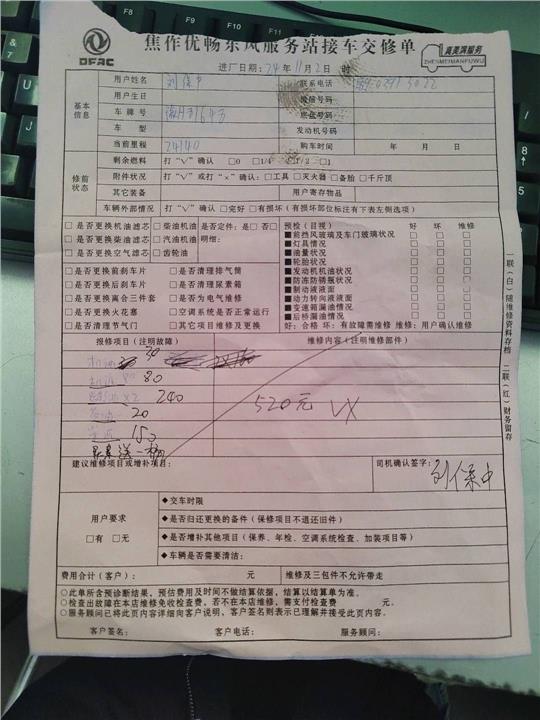 DFAC
焦作优畅东风服务站接车交修单
真美满服务
ZHENMEIMANFUWU
进厂日期：24年11月2日 时
基本信息
用户姓名 刘保中 联系电话
用户生日 微信号码
车牌号 底盘号码
车 型 发动机号码
当前里程 24140 购车时间 年 月 日
修前状态
剩余燃料 打“√”确认 □0 □1/ □ /2 □1
附件状况 打“√”或打“×”确认：□工具 □灭火器 □备胎 □千斤顶
其它装备 用户寄存物品
车辆外部情况 打“√”确认 □完好 □有损坏（有损坏部位标注有下表左侧选项）
□是否更换机油滤芯 □柴油机油 是否定件：是 □否□
□是否更换柴油滤芯 □汽油机油 明细：
□是否更换空气滤芯 □齿轮油
□是否更换前刹车片 □是否清理排气筒
□是否更换后刹车片 □是否清理尿素箱
□是否更换离合三件套 □是否为电气维修
□是否更换火花塞 □空调系统是否正常运行
□是否清理节气门 □其它项目维修及更换
预检（目视） 好 坏 维修
■前挡风玻璃及车门玻璃状况 □ □ □
■灯具情况 □ □ □
■油量状况 □ □ □
■轮胎状况 □ □ □
■发动机机油状况 □ □ □
■防冻防锈瓶状况 □ □ □
■制动液液面 □ □ □
■动力转向液液面 □ □ □
■变速箱漏油情况 □ □ □
■后桥漏油情况 □ □ □
好：合格 坏：有故障需维修 维修：用户确认维修
报修项目（注明故障） 维修内容（注明维修部件）
30
80
x2 240
20
150
送一桶
520元 VX
建议维修项目或增补项目：
司机确认签字：刘保中
用户要求
□有 □无
◆交车时限
◆是否归还更换的备件（保修项目不退还旧件）
◆是否增补其他项目（保养、年检、空调系统检查、加装项目等）
◆车辆是否需要清洁：
费用合计（客户）： 元 维修及三包件不允许带走
○此单所含预诊断结果，预估费用及时间不做结算依据，结算以结算单为准。
○检查出故障在本店维修免收检查费，若不在本店维修，需支付检查费 元。
○服务顾问已将此页内容详细向客户说明，客户签名则表示已理解并接受此页内容。
客户签名： 客户电话： 服务顾问：
一联（白）随维修资料存档
二联（红）财务留存